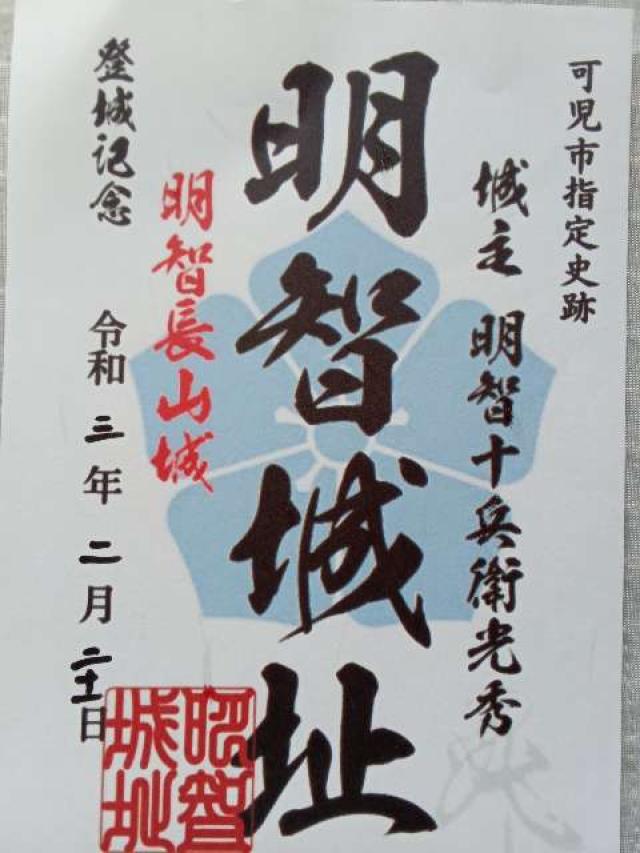 可児市指定史跡
城主 明智十兵衛光秀
明智城址
明智長山城
登城記念
令和三年二月二十一日
明智城址